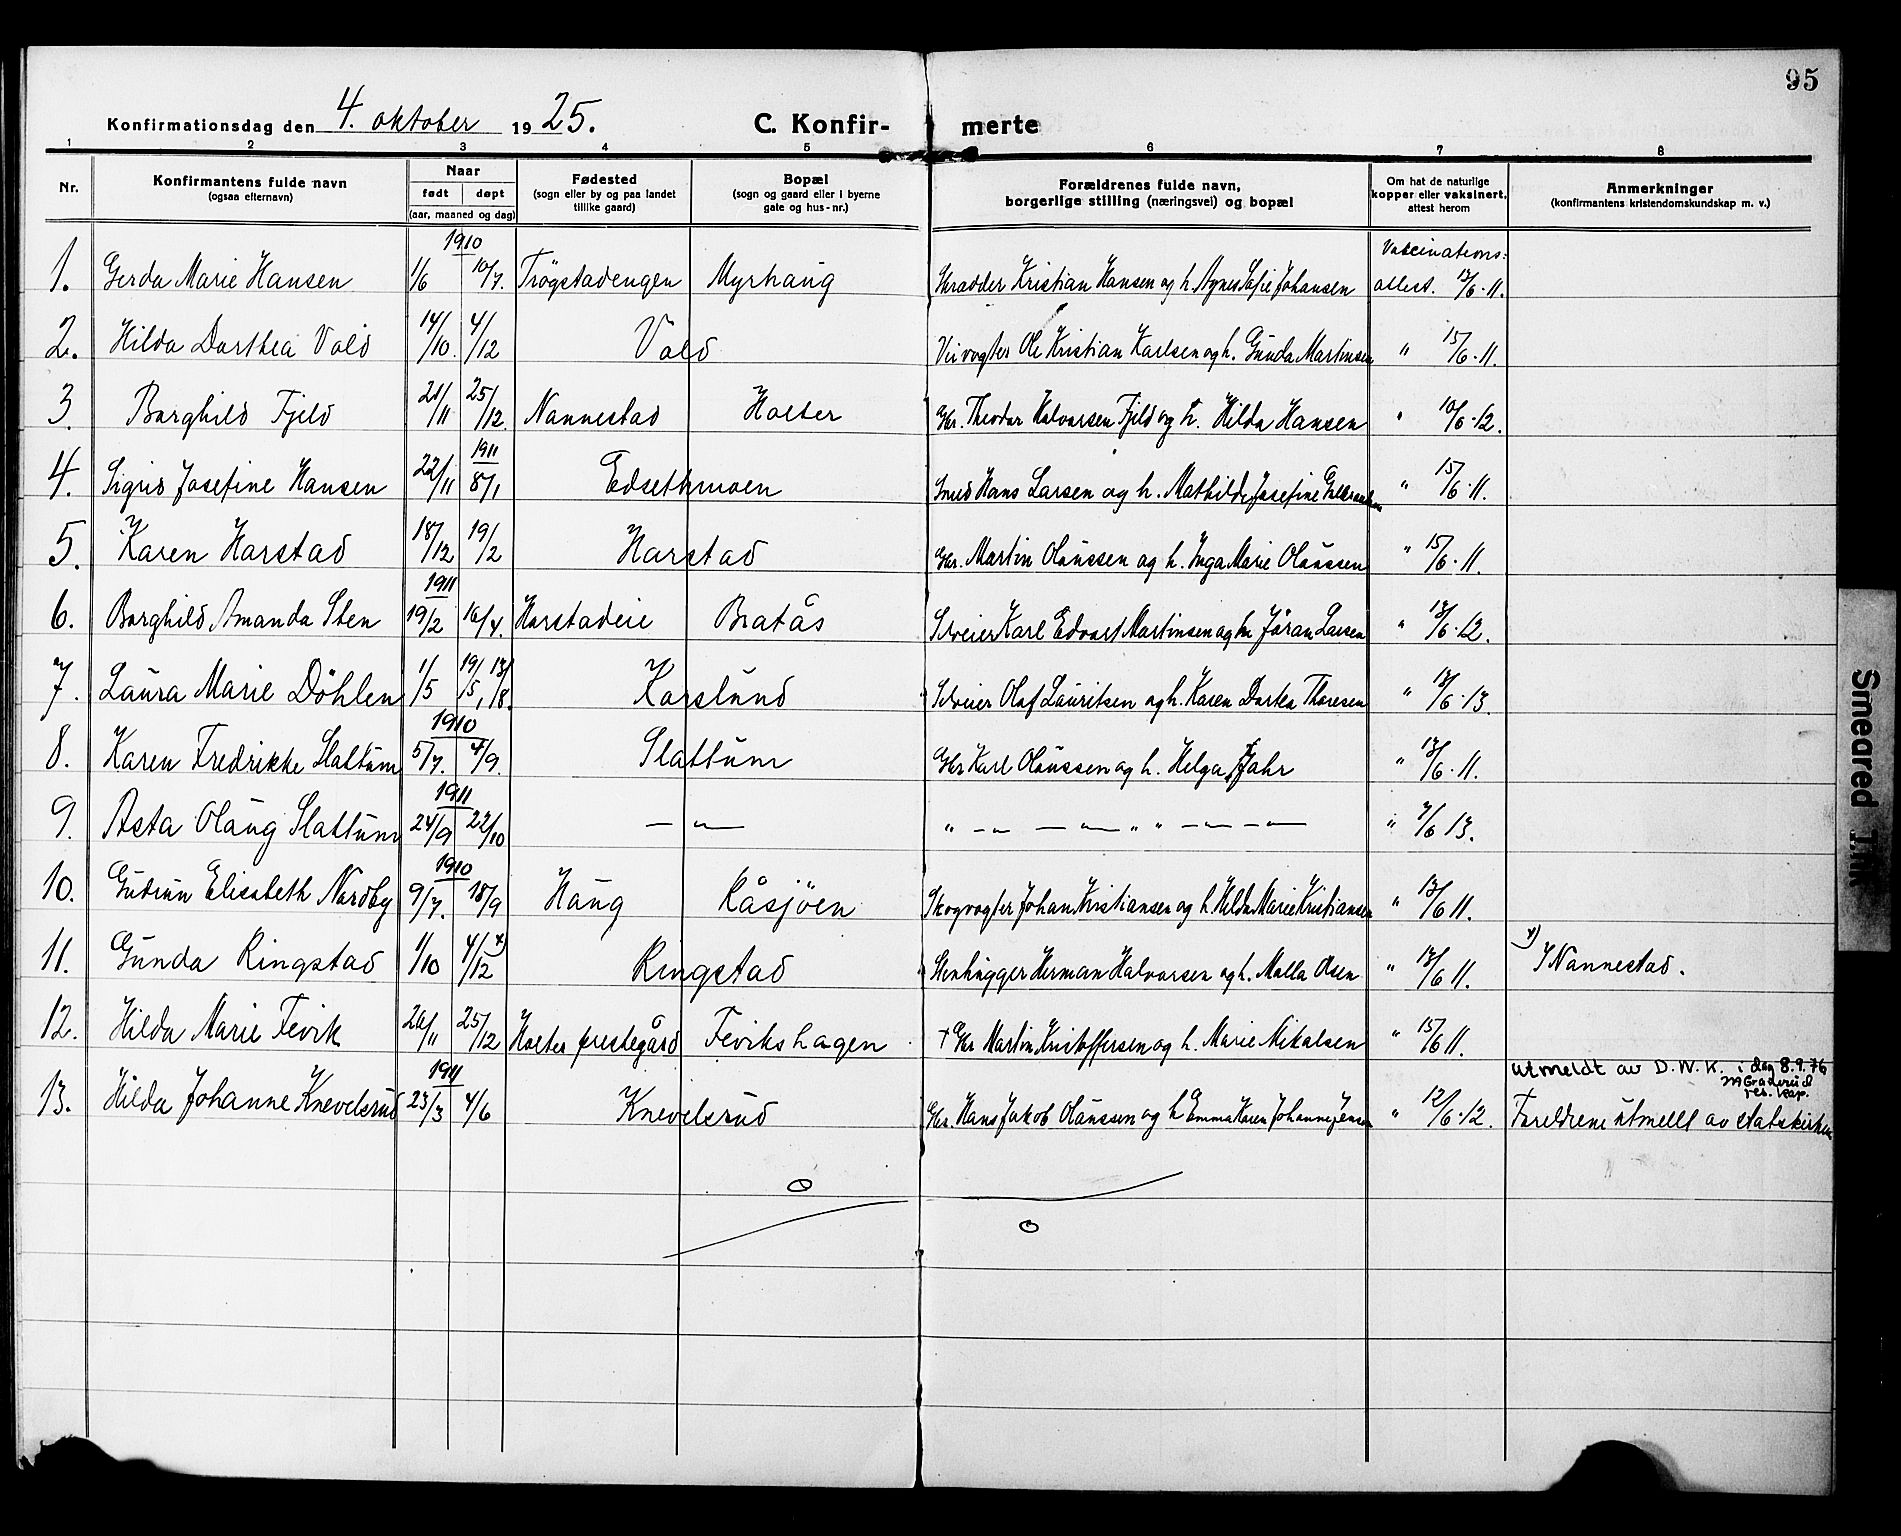 95
Konfirmationsdag den 4. oktober 1925. C. Konfir- merte
1 2 3 4 5 6 7 8
Nr. Konfirmantens fulde navn (ogsaa efternavn) Naar født døpt (aar, maaned og dag) Fødested (sogn eller by og paa landet tillike gaard) Bopæl (sogn og gaard eller i byerne gate og hus-nr.) Forældrenes fulde navn, borgerlige stilling (næringsvei) og bopæl Om hat de naturlige kopper eller vaksinert, attest herom Anmerkninger (konfirmantens kristendomskundskap m. v.)
1910 Vaccinations-
1. Gerda Marie Hansen 1/6 10/7. Trögstadengen Myrhaug Skrædder Kristian Hansen og h. Agnes Sofie Johansen attest. 13/6.11.
2. Hilda Dorthea Vold 14/10. 4/12 Vold Ole Kristian Karlsen og h. Gunda Martinsen " 15/6.11.
3. Borghild Fjeld 21/11 25/12. Nannestad Holter Gbr. Theodor Halvorsen Fjeld og h. Hilda Hansen " 10/6.12.
1911
4. Sigrid Josefine Hansen 22/11 8/1 Edsethmoen Smed Hans Larsen og h. Mathilde Josefine " 15/6.11.
5. Karen Harstad 18/12 19/2 Harstad Gbr. Martin Olaussen og h. Inga Marie Olaussen " 15/6.11.
1911
6. Borghild Amanda Sten 19/2 16/4. Harstadeie Bratås Selveier Karl Edvart Martinsen og h. Jöran Larsen " 13/6.12.
7. Laura Marie Döhlen 1/5 19/5, 13/8. Karslund Selveier Olaf Lauritsen og h. Karen Dortea Thoresen " 13/6.13.
1910
8. Karen Fredrikke Slattum 5/7. 4/9. Slattum Gbr Karl Olaussen og h. Helga Fjahr " 13/6.11.
1911
9. Asta Olaug Slattum 24/9 22/10 — " — " — " — — " — " " — " — " — " 7/6 13.
1910
10. Gudrun Elisabeth Nordby 9/7. 18/9 Haug Råsjöen Skogvogter Johan Kristiansen og h. Hilda Marie Kristiansen " 13/6 11.
11. Gunda Ringstad 1/10 4/12 x) Ringstad Stenhugger Herman Halvorsen og h. Malla Olsen " 13/6 11. x) I Nannestad.
12. Hilda Marie Fevik 26/11 25/12 Holter prestegård Fevikshagen + Gbr Martin Kristoffersen og h. Marie Mikalsen " 15/6 11.
1911 utmeldt av D.N.K. i dag 8.9.76
res. kap.
13. Hilda Johanne Knevelsrud 23/3 4/6 Knevelsrud Gbr. Hans Jakob Olaussen og h Emma Karen Johanne Jensen " 12/6.12. Foreldrene utmeldt av statskirken
Smeared Ink